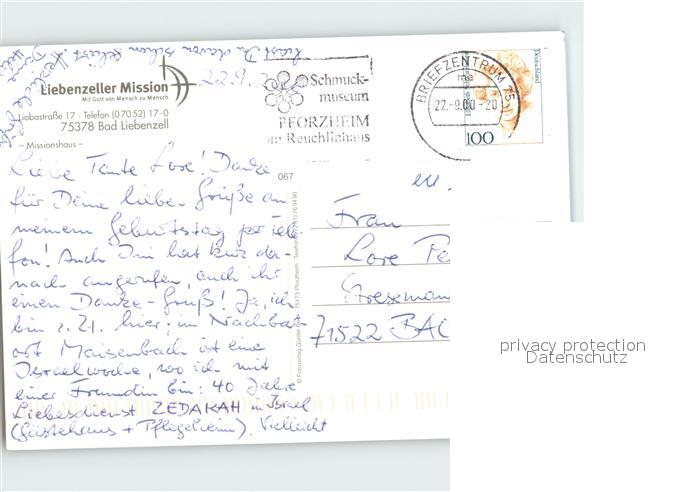 Liebenzeller Mission
Mit Gott von Mensch zu Mensch
Liobastraße 17 · Telefon (07052) 17-0
75378 Bad Liebenzell
– Missionshaus –
22.9.
Schmuck-
museum
PFORZHEIM
im Reuchlinhaus
BRIEFZENTRUM 75
22.-9.00-20
Deutschland
100
067
Liebe Tante Lore! Danke
für Deine lieben Grüße an
meinem Geburtstag per Tele-
fon! Auch Omi hat kurz da-
nach angerufen, auch ihr
einen Danke-Gruß! Ja, ich
bin z.Zt. hier; im Nachbar-
ort Maisenbach ist eine
Israelwoche, wo ich mit
einer Freundin bin: 40 Jahre
Liebesdienst ZEDAKAH in Israel
(Gästehaus + Pflegeheim). Vielleicht
hast Du davon schon gehört.
Frau
Lore Pe
Stresemann
71522 BAC
privacy protection
Datenschutz